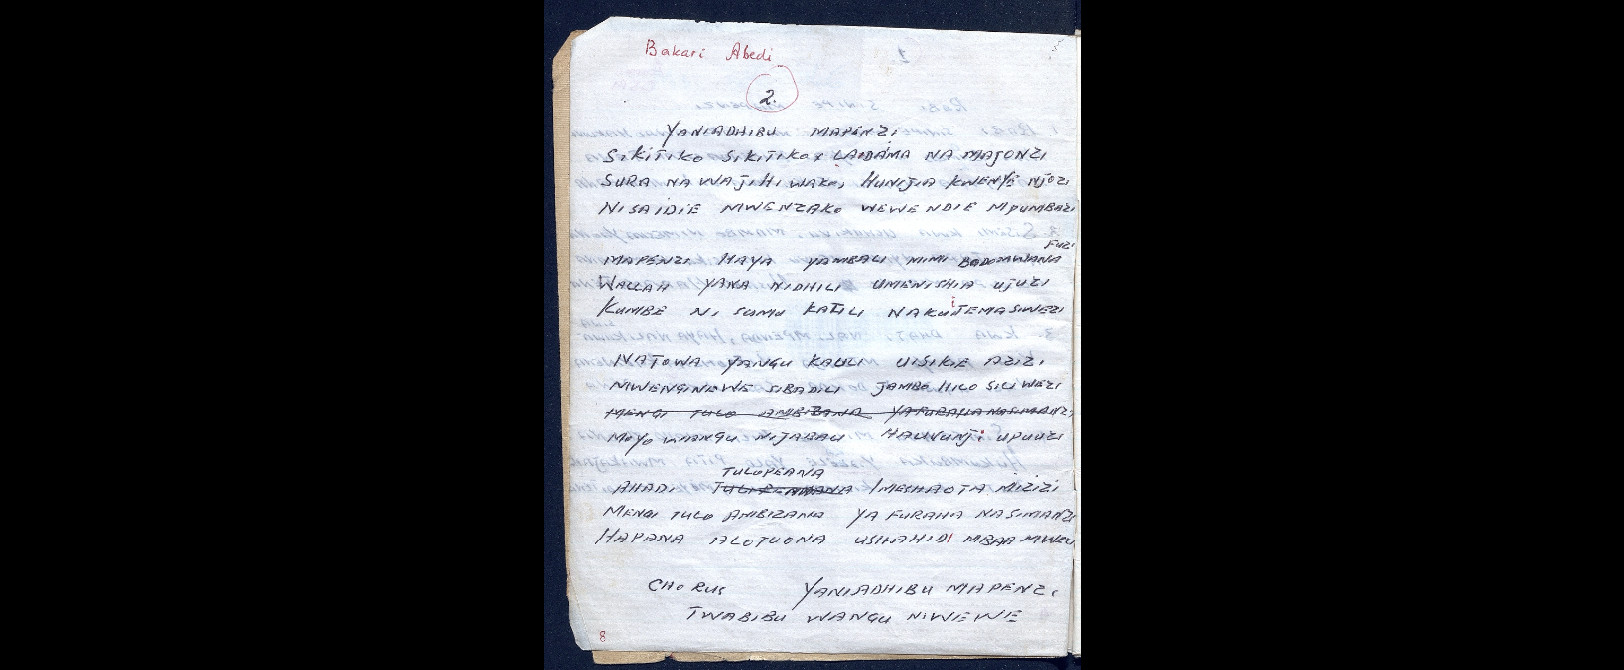 Bakari Abedi
2.
YANIADHIBU MAPENZI
SIKITIKO SIKITIKO, LADAMA NA MAJONZI
SURA NA WAJIHI WAKO, HUNIJIA KWENYE NJOZI
NISAIDIE MWENZAKO WEWE NDIE MPUMBAZI
FUZI
MAPENZI HAYA YAMBALI MIMI BADO MWANA
WALLAH YANA NIDHILI UMENISHIA UJUZI
KUMBE NI SUMU KATILI NAKUITEMA SIWEZI
NATOWA YANGU KAULI UISIKIE AZIZI
MWENGINEWE SIBADILI JAMBO HILO SILIWEZI
MENGI TULO AMBIZANA YA FURAHA NA SIMANZI
MOYO WANGU NIJABALI HAUVUNJI UPUUZI
TULOPEANA
AHADI IMESHAOTA MIZIZI
MENGI TULO AMBIZANA YA FURAHA NA SIMANZI
HAPANA ALOTUONA USHAHIDI MBAA MWEZI
CHORUS YANIADHIBU MAPENZI
TWABIBU WANGU NIWEWE
8